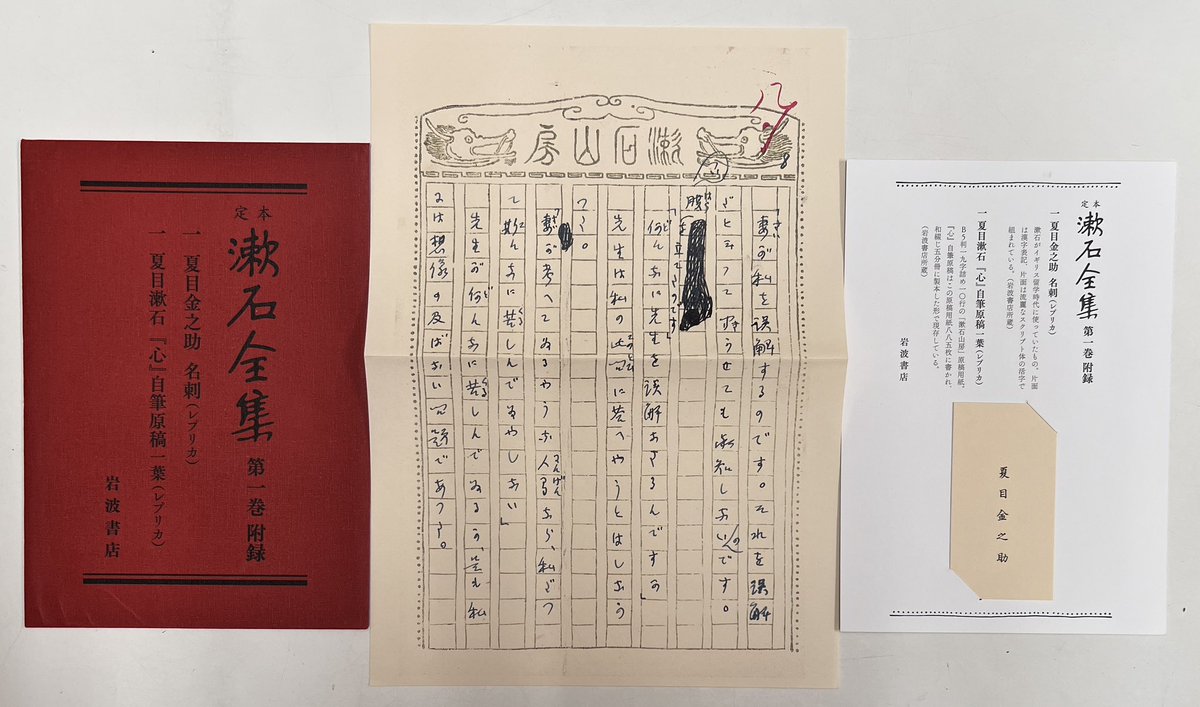 定本
漱石全集 第一巻 附録
一 夏目金之助 名刺（レプリカ）
一 夏目漱石『心』自筆原稿一葉（レプリカ）
岩波書店
漱石山房
8
「妻が私を誤解するのです。それを誤解
だと云つて聞かせても承知しないのです。
腹を立てたのです」
「何んなに先生を誤解なさるんですか」
先生は私の此問に答へやうとはしなかつ
た。
「妻が考へてゐるやうな人間なら、私だつ
て斯んなに苦しんでゐやしない」
先生が何んなに苦しんでゐるか、是も私
には想像の及ばない問題であつた。
定本
漱石全集 第一巻 附録
一 夏目金之助 名刺（レプリカ）
漱石がイギリス留学時代に使っていたもの。片面
は漢字表記、片面は流麗なスクリプト体の活字で
組まれている。（岩波書店所蔵）
一 夏目漱石『心』自筆原稿一葉（レプリカ）
B5判一九字詰め一〇行の「漱石山房」原稿用紙。
『心』自筆原稿はこの原稿用紙八八五枚に書かれ、
和綴じ五分冊に製本した形で現存している。
（岩波書店所蔵）
岩波書店
夏目金之助